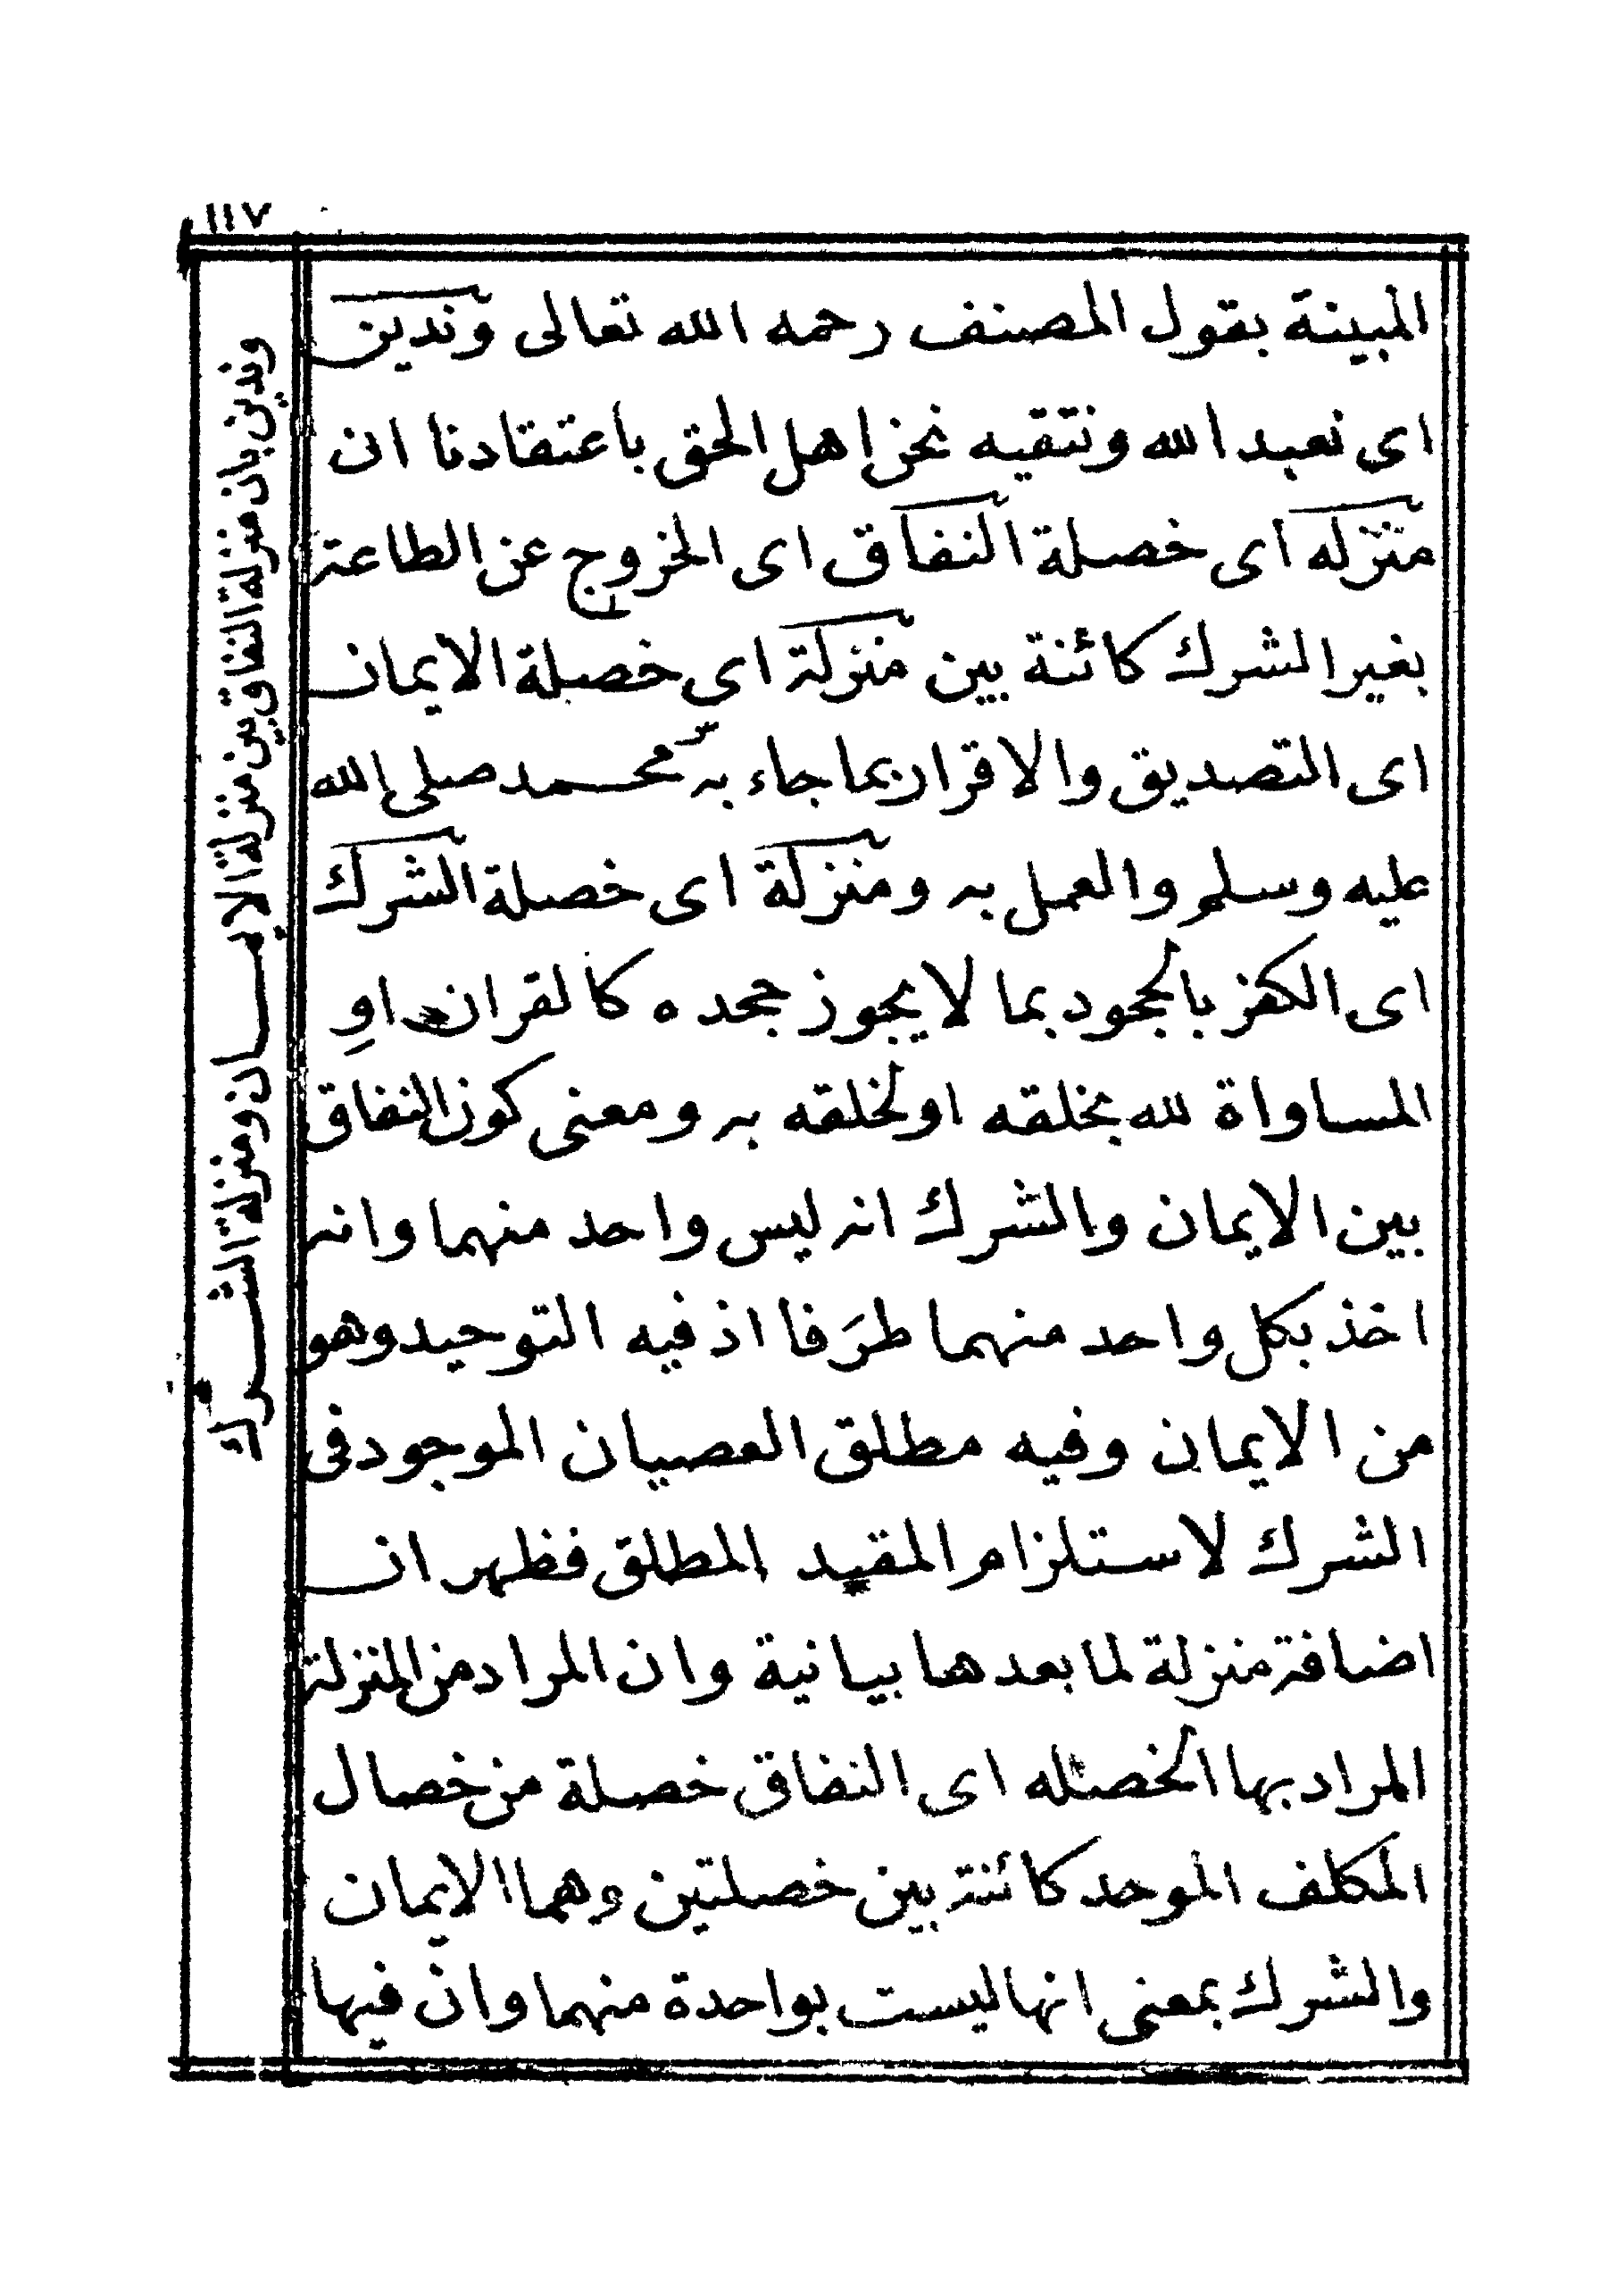 ١١٧
المبينة بقول المصنف رحمه الله تعالى وندين
اى نعبد الله ونتقيه نحن اهل الحق باعتقادنا ان
منزله اى خصلة النفاق اى الخروج عن الطاعة
بغير الشرك كائنة بين منزلة اى خصلة الايمان
اى التصديق والاقرار بما جاء به محمد صلى الله
عليه وسلم والعمل به ومنزلة اى خصلة الشرك
اى الكفر بالجحود بما لا يجوز جحده كالقران او
المساواة لله بخلقه او لخلقه به ومعنى كون النفاق
بين الايمان والشرك انه ليس واحد منهما وانه
اخذ بكل واحد منهما طرَفا اذ فيه التوحيد وهو
من الايمان وفيه مطلق العصيان الموجود فى
الشرك لاستلزام المقيد المطلق فظهر ان
اضافة منزلة لما بعدها بيانية وان المراد من المنزلة
المراد بها الخصله اى النفاق خصلة من خصال
المكلف الموحد كائنة بين خصلتين وهما الايمان
والشرك بمعنى انها ليست بواحدة منهما وانّ فيها
وندين بان منزلة النفاق بين منزلة الايمان ومنزلة الشرك